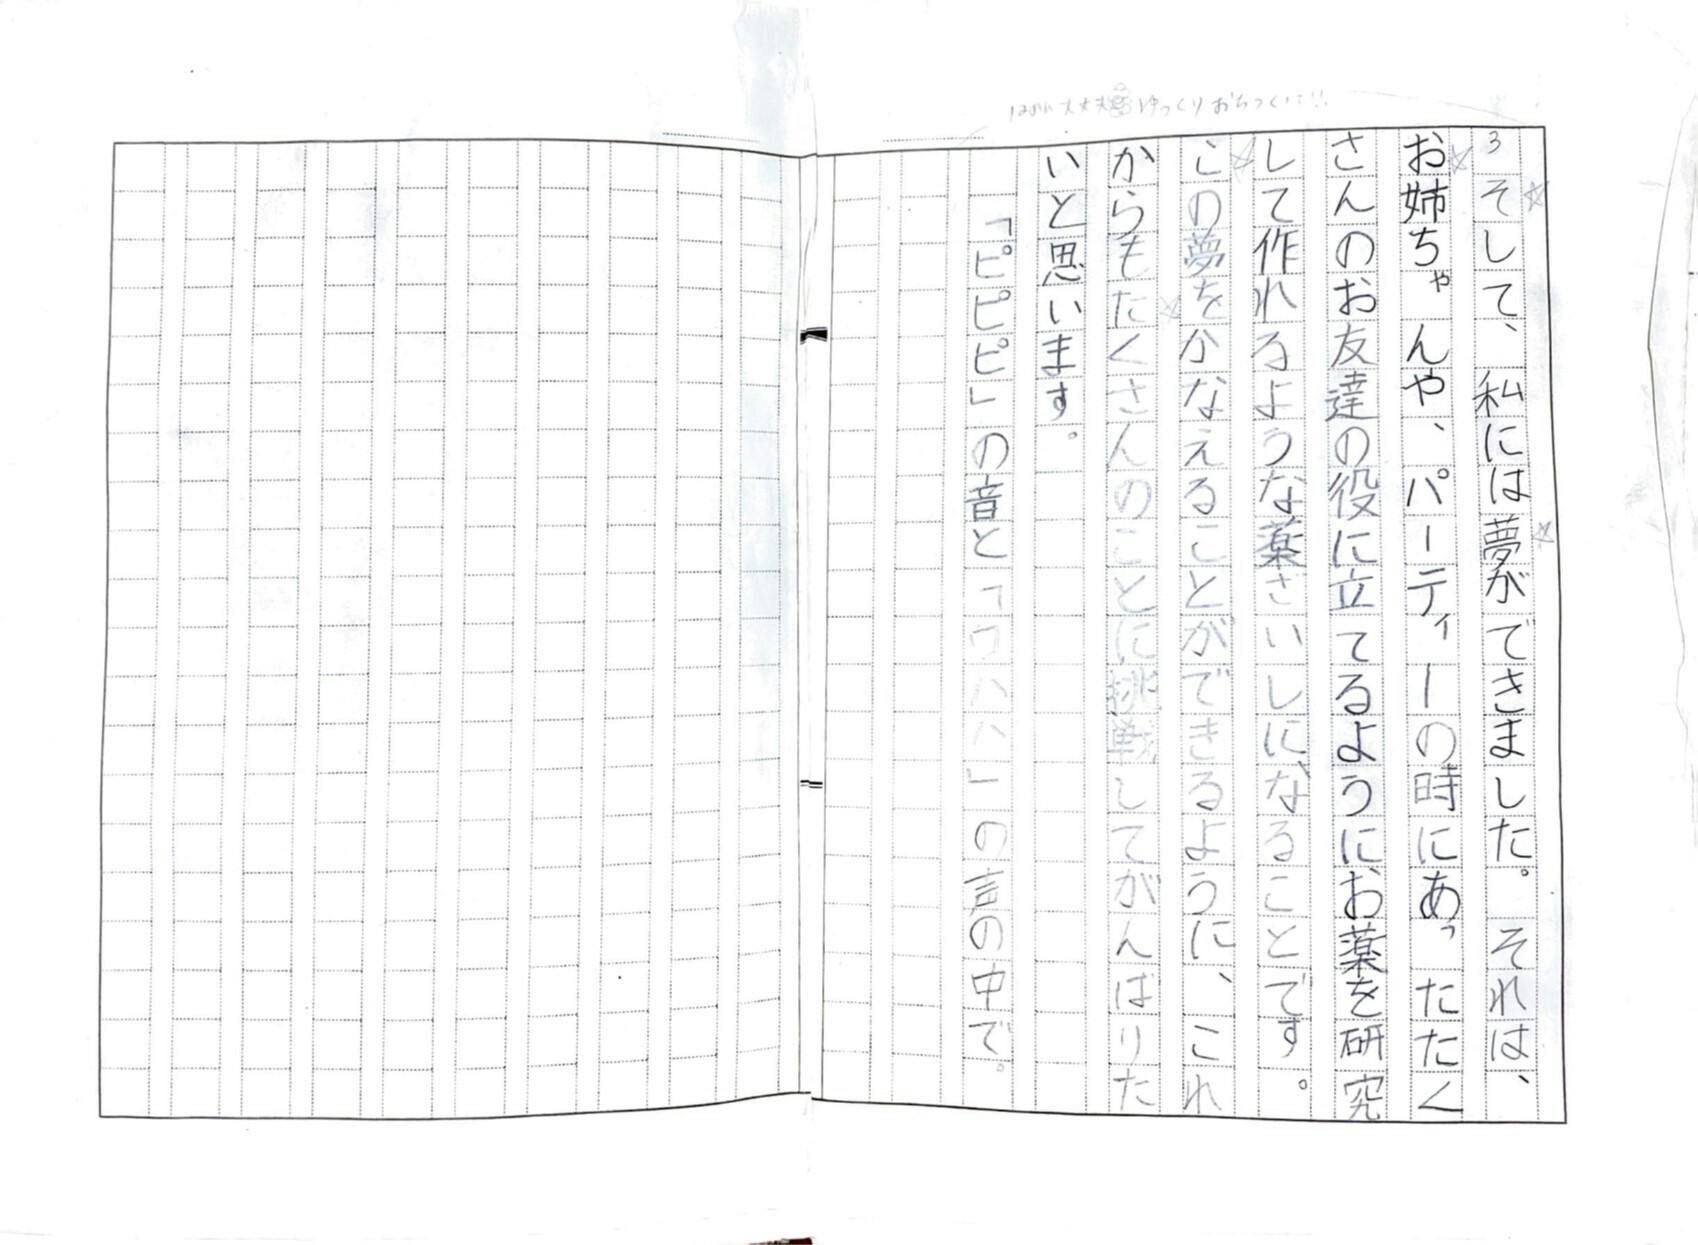 ゆっくりおちついて!!
3
そして、私には夢ができました。それは、
お姉ちゃんや、パーティーの時にあったたく
さんのお友達の役に立てるようにお薬を研究
して作れるような薬ざいしになることです。
この夢をかなえることができるように、これ
からもたくさんのことに挑戦してがんばりた
いと思います。
「ピピピ」の音と「ワハハ」の言の中で。